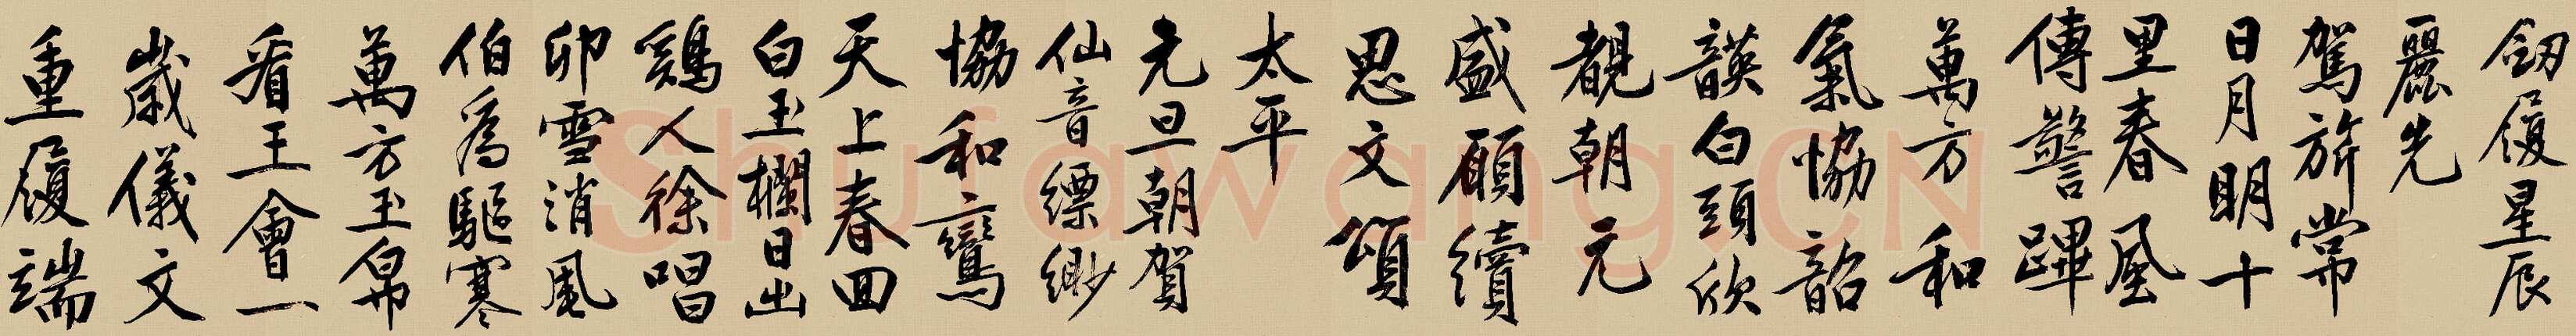 劒履星辰
麗先
駕旂常
日月明十
里春風
傳警蹕
萬方和
氣協韶
韺白頭欣
覩朝元
盛願續
思文頌
太平
元旦朝賀
仙音縹緲
協和鸞
天上春回
白玉欄日出
鷄人徐唱
卯雪消風
伯為驅寒
萬方玉帛
看王會一
歲儀文
重履端
Shufawang.CN